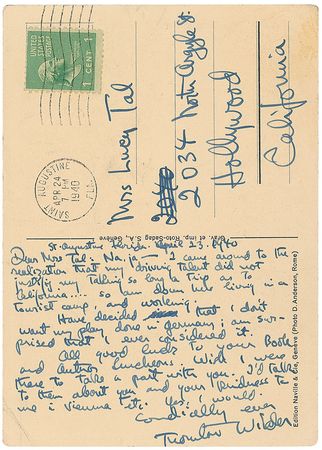 UNITED STATES POSTAGE
1 CENT 1
SAINT AUGUSTINE
APR 24
7 PM
1940
FLA.
Miss Lucy Tal
2034 North Argyle St.
Hollywood
California
Grav. et Imp. Roto-Sadag S.A., Genève
Edition Naville & Cie, Genève (Photo D. Anderson, Rome)
St. Augustine Florida. April 23. 1940
Dear Miss Tal: Na, ja — I came around to the
realization that my driving talent did not
justify my talking so long a trip as to
California.... so am down here living in a
tourist camp, and working.
Have decided that I don't
want my play done in Germany; am sur-
prised that I ever considered it.
All good luck to your Book
and Author luncheons. Wish I were
there to take a part with you. I'd talk
to them about you and your kindness to
me in Vienna etc. Yes, I would.
Cordially ever
Thornton Wilder